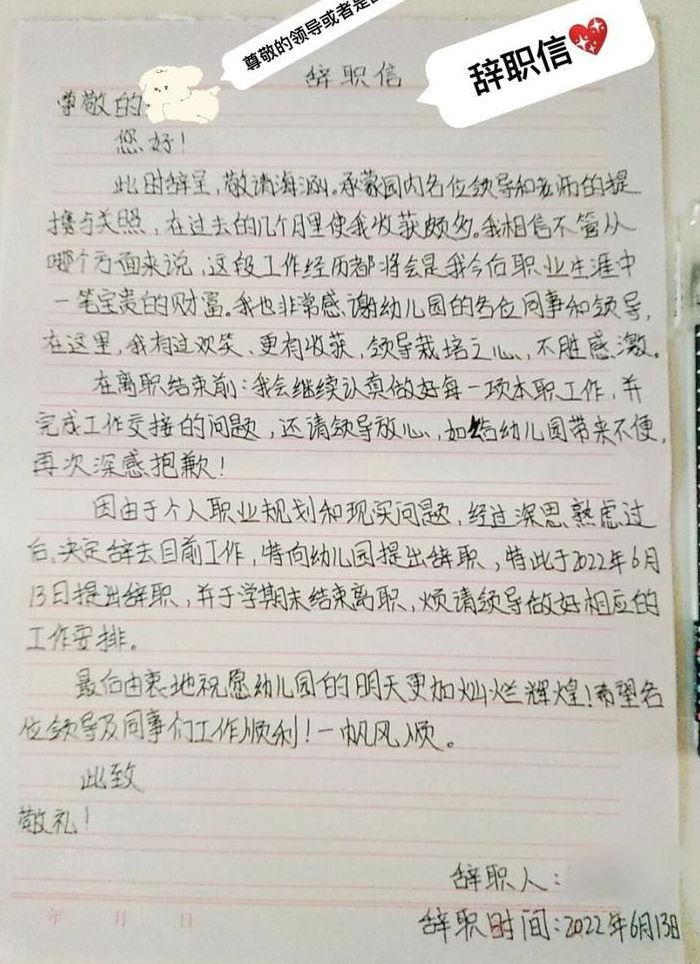 尊敬的领导或者是
辞职信
辞职信
尊敬的
您好！
此时辞呈，敬请海涵。承蒙园内各位领导和老师的提
携与关照，在过去的几个月里使我收获颇多。我相信不管从
哪个方面来说，这段工作经历都将会是我今后职业生涯中
一笔宝贵的财富。我也非常感谢幼儿园的各位同事和领导，
在这里，我有过欢笑、更有收获，领导栽培之心、不胜感激。
在离职结束前：我会继续认真做好每一项本职工作，并
完成工作交接的问题，还请领导放心、如给幼儿园带来不便，
再次深感抱歉！
因由于个人职业规划和现实问题，经过深思熟虑过
后、决定辞去目前工作，特向幼儿园提出辞职，特此于2022年6月
13日提出辞职、并于学期末结束离职、烦请领导做好相应的
工作安排。
最后由衷地祝愿幼儿园的明天更加灿烂辉煌！希望各
位领导及同事们工作顺利！一帆风顺。
此致
敬礼！
辞职人：
辞职时间：2022年6月13日
年 月 日